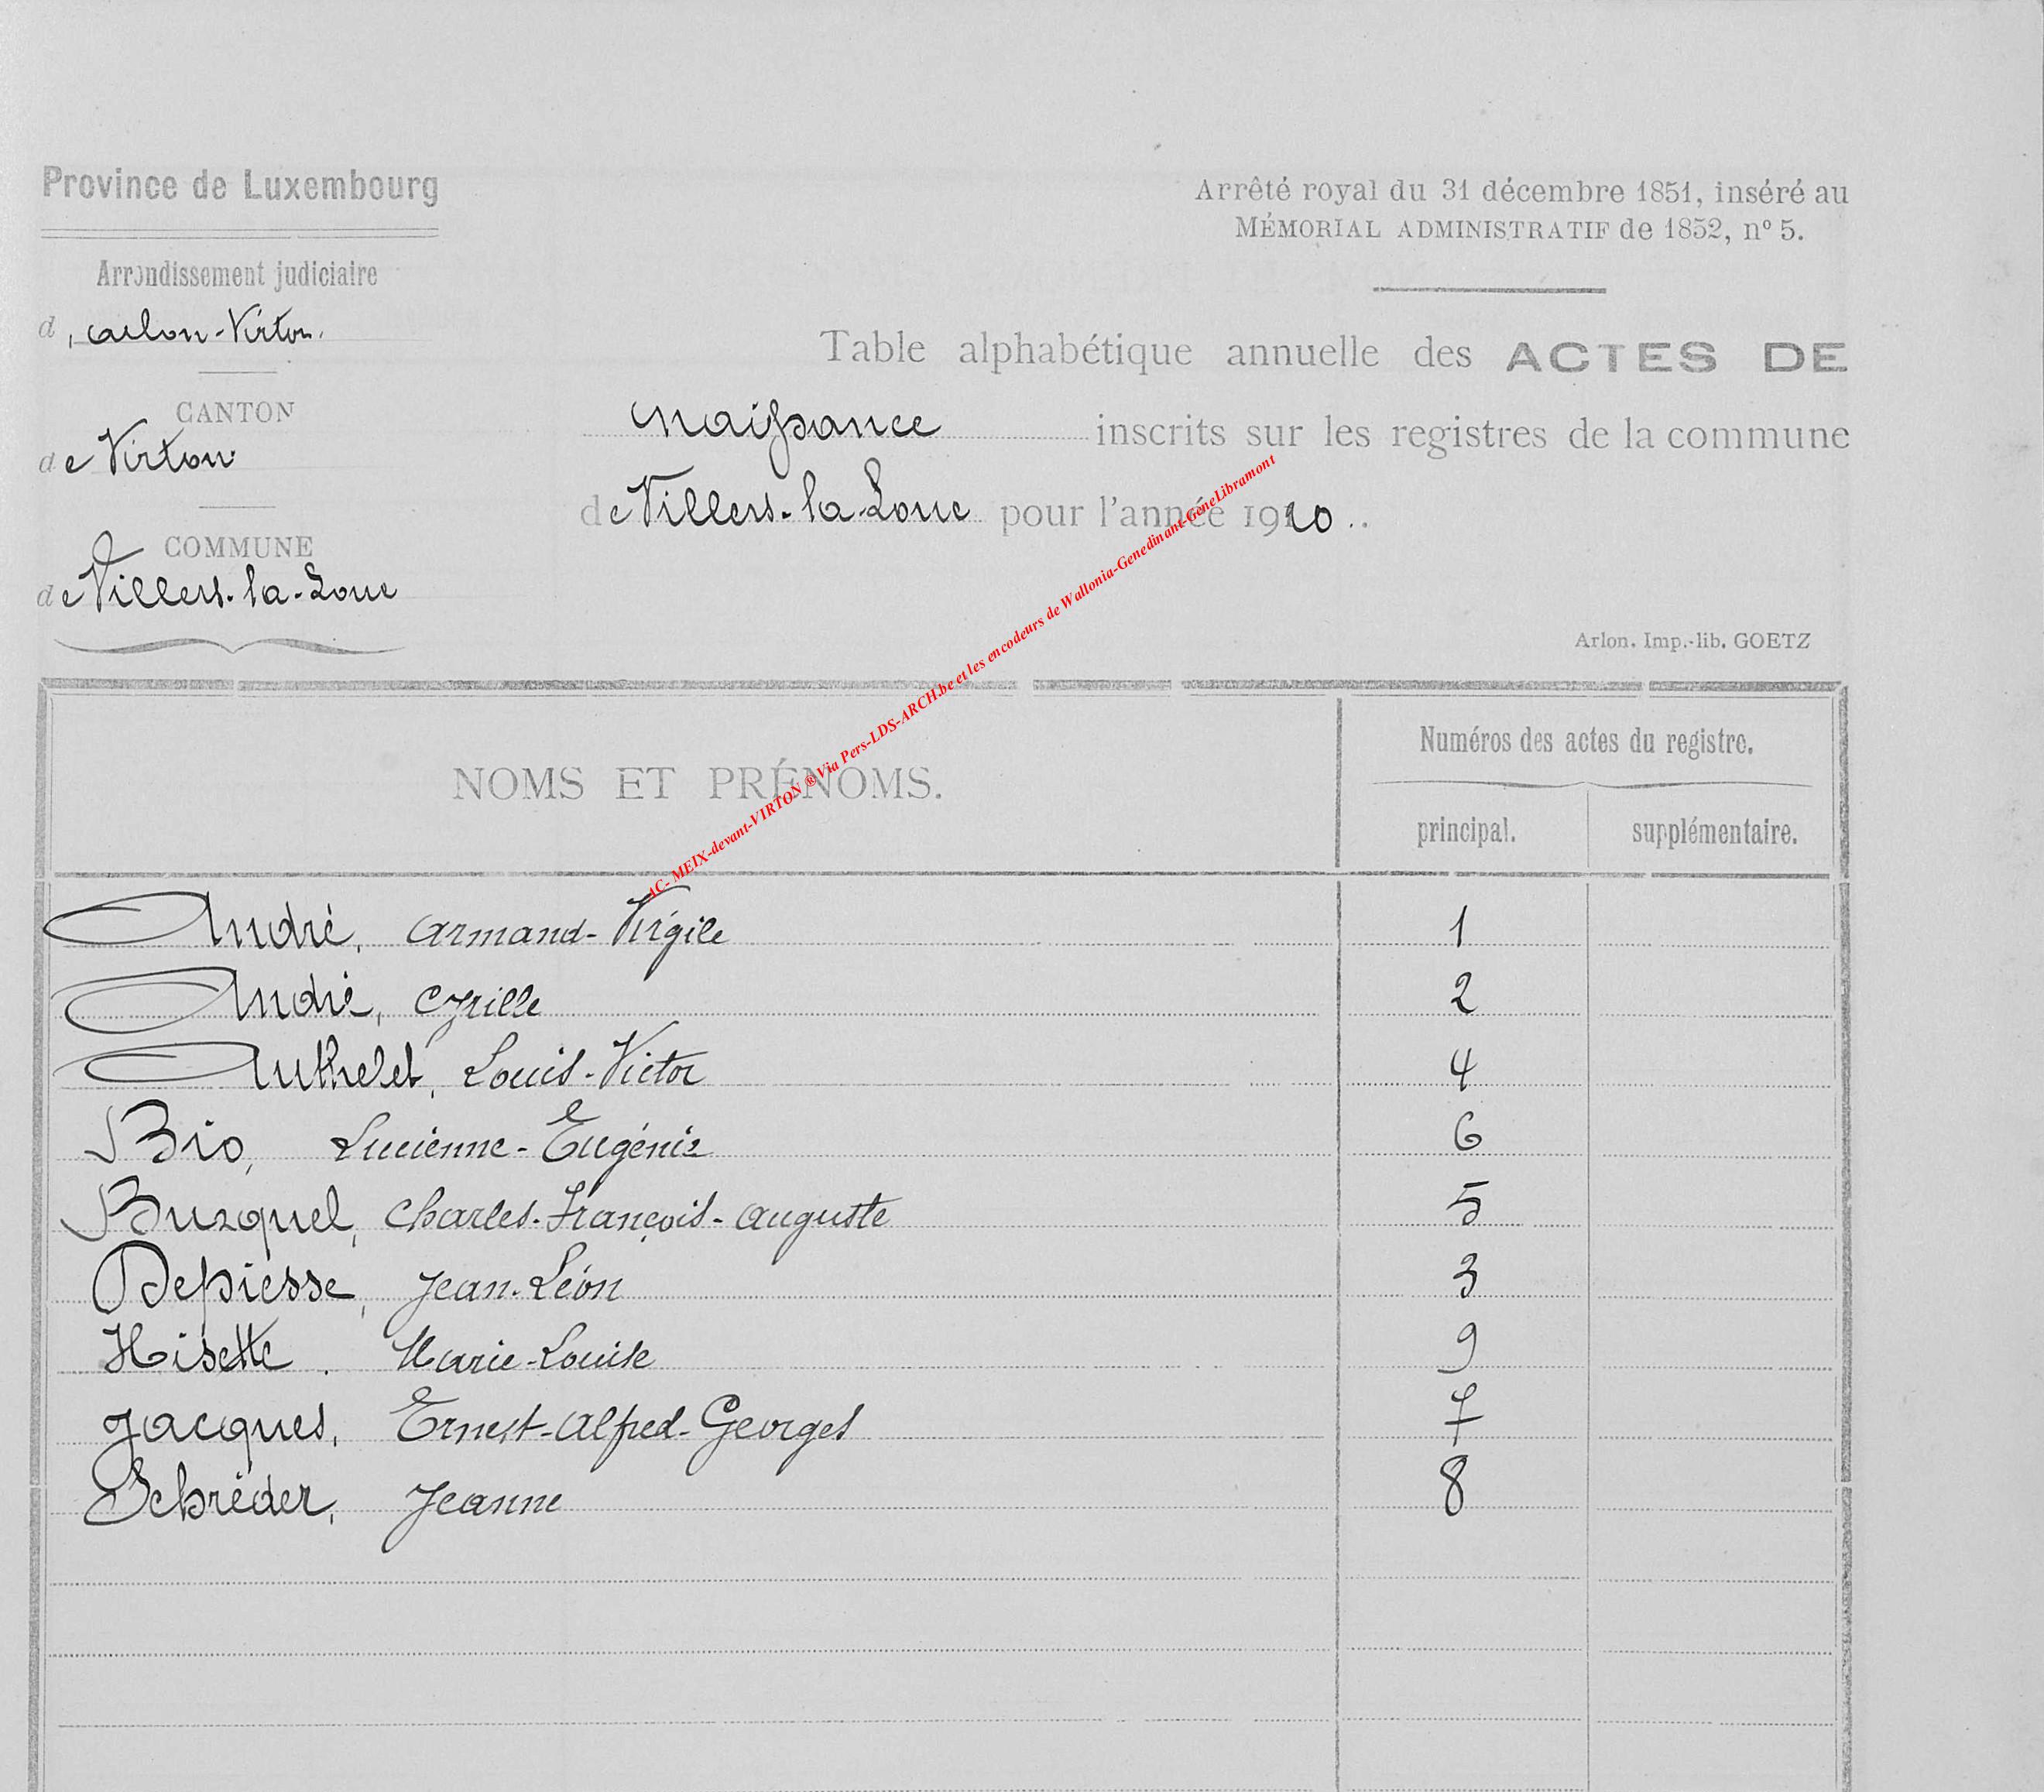 Province de Luxembourg
Arrondissement judiciaire
d'Arlon-Virton
CANTON
de Virton
COMMUNE
de Villers-la-Loue
Arrêté royal du 31 décembre 1851, inséré au
MÉMORIAL ADMINISTRATIF de 1852, n° 5.
Table alphabétique annuelle des ACTES DE
Naissance inscrits sur les registres de la commune
de Villers-la-Loue pour l'année 1920..
Arlon. Imp.-lib. GOETZ
AC- MEIX-devant-VIRTON ® Via Pers-LDS-ARCH.be et les encodeurs de Wallonia-Genedinant-GeneLibramont
NOMS ET PRÉNOMS.
Numéros des actes du registre.
principal. supplémentaire.
André, Armand-Virgile 1
André, Cyrille 2
Authelet, Louis-Victor 4
Bio, Lucienne-Eugénie 6
Buzquel, Charles-François-Auguste 5
Depiesse, Jean-Léon 3
Hisette. Marie-Louise 9
Jacques, Ernest-Alfred-Georges 7
Schréder, Jeanne 8